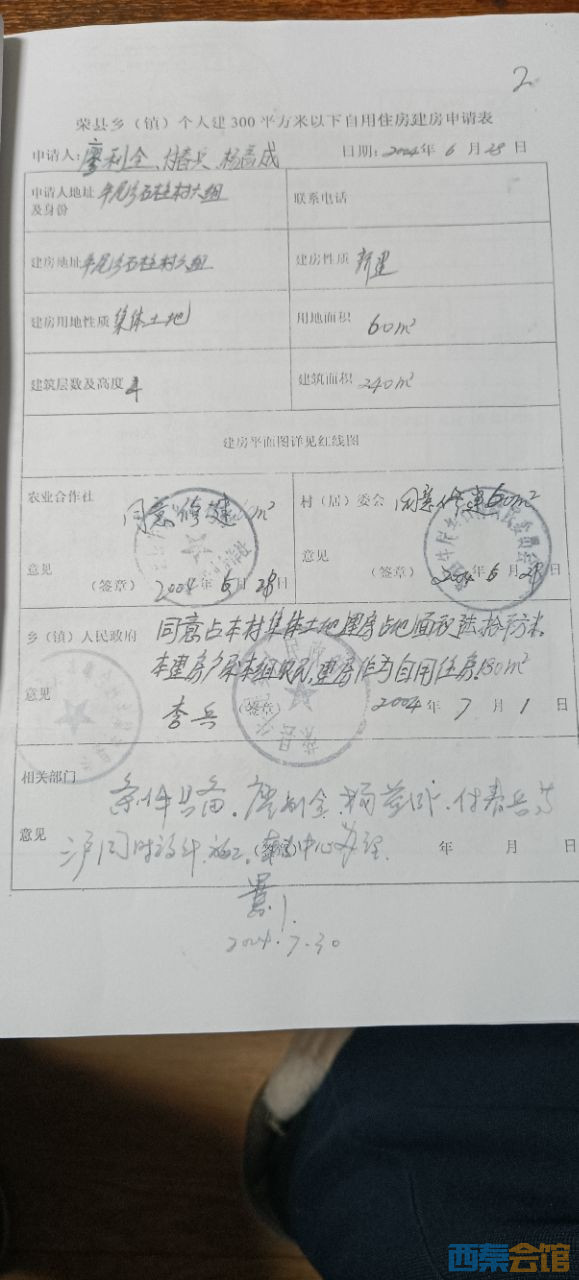 2
荣县乡（镇）个人建300平方米以下自用住房建房申请表
申请人：廖利全、付春兵、杨 成 日期：2004年6月28日
申请人地址及身份 牟尾 石柱村六组 联系电话
建房地址 牟尾 石柱村六组 建房性质 新建
建房用地性质 集体土地 用地面积 60m²
建筑层数及高度 4 建筑面积 240m²
建房平面图详见红线图
农业合作社 同意修建 m² 村（居）委会 同意修建60m²
意见 （签章） 2004年6月28日 意见 （签章） 2004年6月28日
乡（镇）人民政府 同意占本村集体土地建房占地面积陆拾平方米，
本建房户系本组农民，建房作为自用住房180m²
意见 李兵 （签章） 2004年7月1日
相关部门 条件具备，廖利全、杨 、付春兵等
意见 三户同时设计、施工， 中心办理 （签章） 年 月 日
2004.7.30
西秦会馆